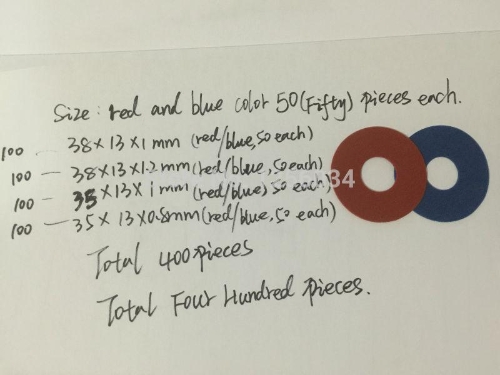 Size: red and blue color 50(Fifty) pieces each.
100 — 38×13×1mm (red/blue, 50 each)
100 — 38×13×1.2mm (red/blue, 50 each)
100 — 35×13×1mm (red/blue) 50 each)
100 — 35×13×0.8mm (red/blue, 50 each)
Total 400 pieces
Total Four Hundred pieces.